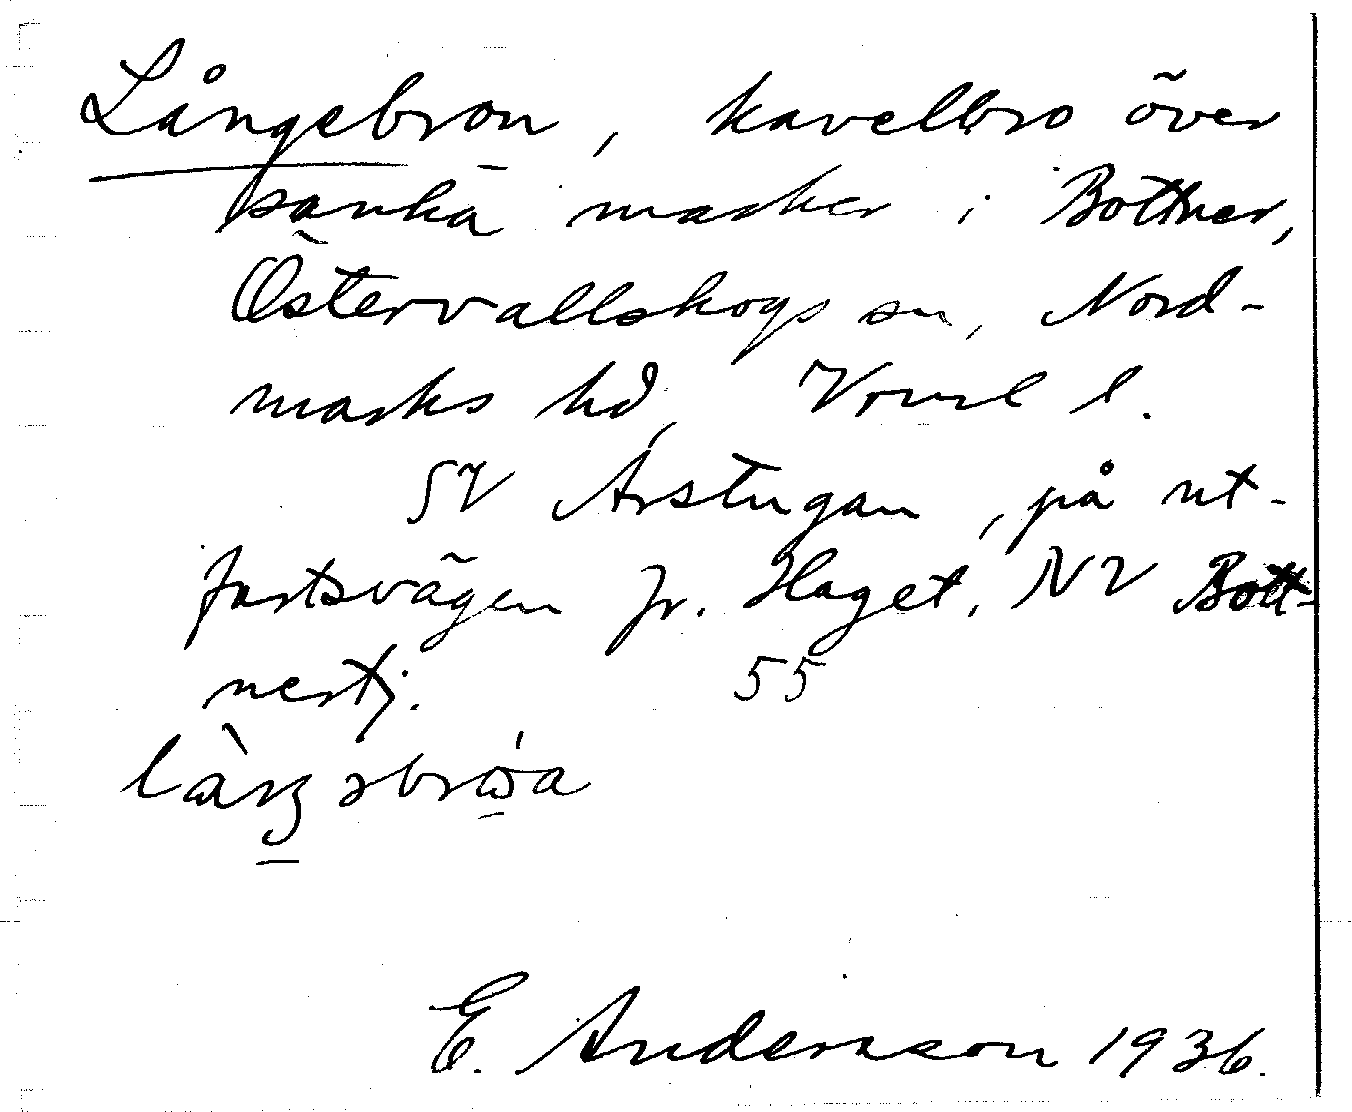 Långebron, kavelbro över
sanka marker i Bottner,
Östervallskogs sn, Nord-
marks hd, Vrml l.
SV Årstugan, på ut-
fartsvägen fr. Haget, NV Bott-
nertj. 55
E. Andersson 1936.